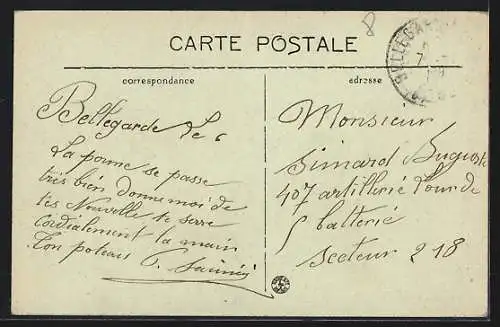 8
CARTE POSTALE
correspondance
adresse
BELLEGARDE
Bellegarde Le 6
La porme se passe
très bien donne moi de
tes Nouvelle te serre
cordialement la main
Ton poteau
Monsieur
Simard Auguste
407 artillerie lourde
5 batterie
secteur 218